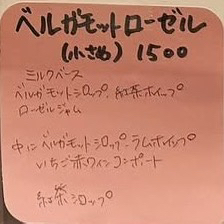 ベルガモットローゼル
(小さめ) 1500
ミルクベース
ベルガモットシロップ、紅茶ホイップ
ローゼルジャム
中にベルガモットシロップ、ラムホイップ
いちご赤ワインコンポート
紅茶シロップ